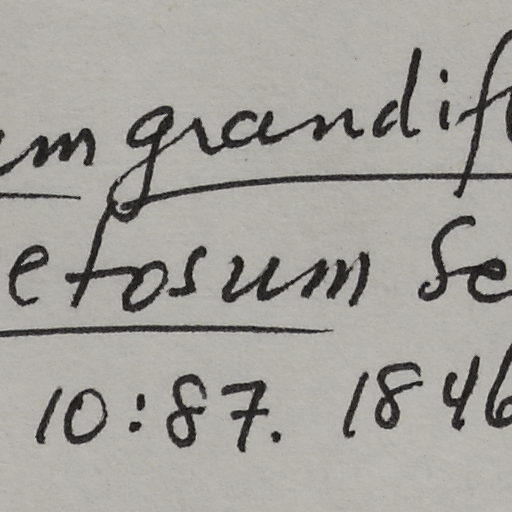 um grandifl
etosum Se
10:87. 1846